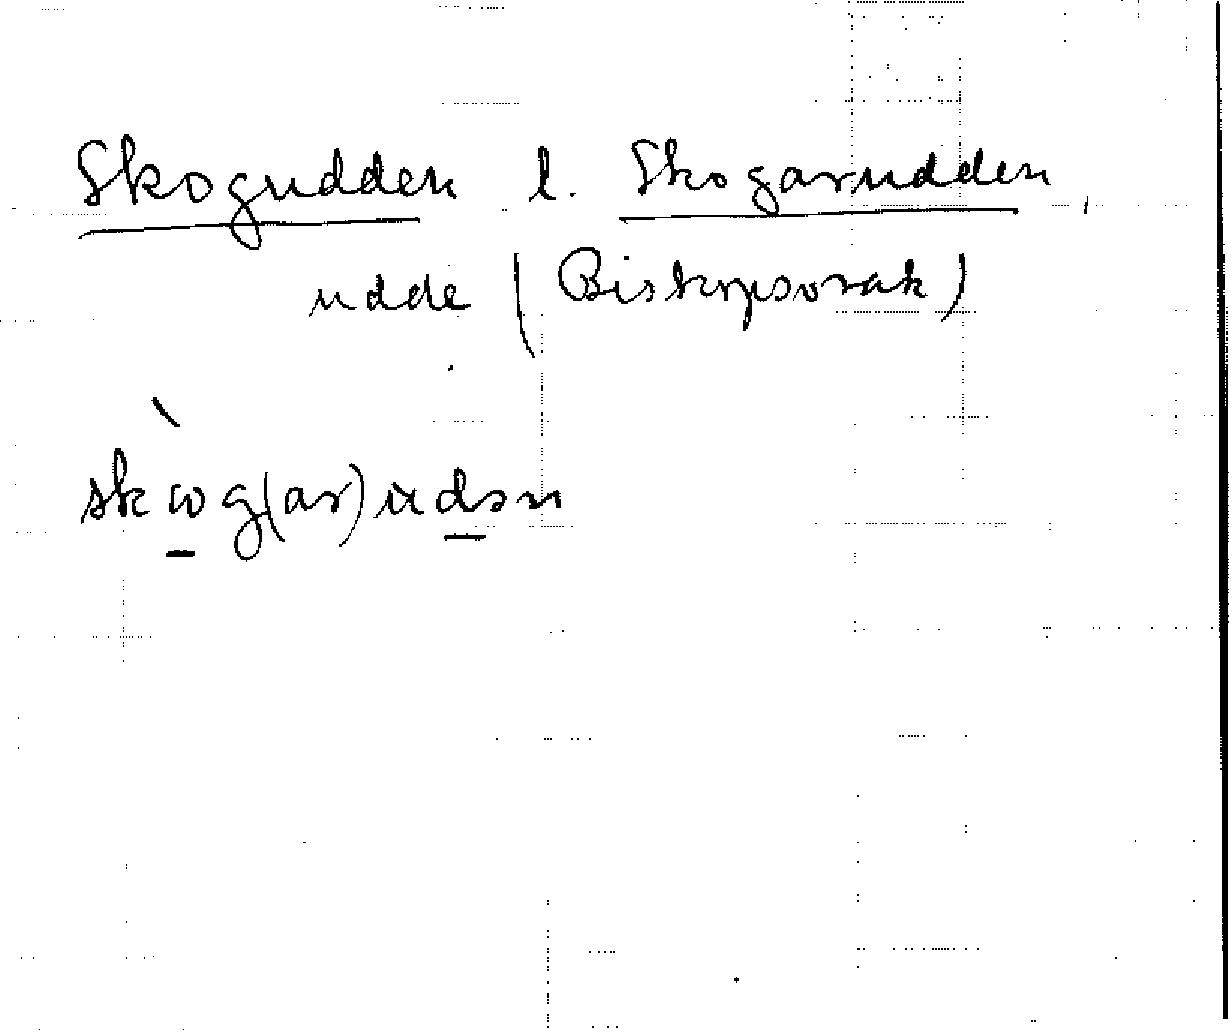 Skogudden l. Skogarudden,
udde (Biskopsvrak)
skωg(ar)udən